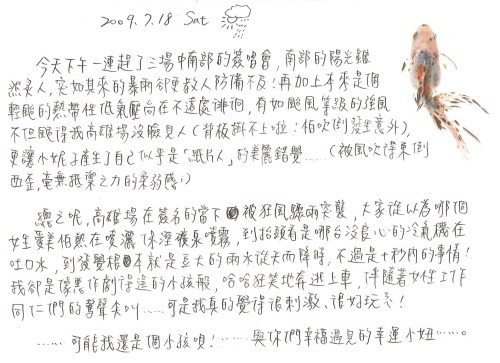 2009.7.18 Sat
今天下午一連趕了三場中南部的簽唱會，南部的陽光雖
然炙人，突如其來的暴雨卻更教人防備不及！再加上本來是個
輕颱的熱帶性低氣壓尚在不遠處徘徊，有如颱風等級的強風
不但颳得我高雄場沒臉見人（背板掛不上啦！怕吹倒發生意外），
更讓小妮子產生了自己似乎是「紙片人」的美麗錯覺……（被風吹得東倒
西歪，毫無抵禦之力的柔弱感）
總之呢，高雄場在簽名的當下被狂風驟雨突襲，大家從以為哪個
女生愛美怕熱在噴灑保溼礦泉噴霧，到抬頭看是哪台沒良心的冷氣機在
吐口水，到發覺根本就是豆大的雨水從天而降時，不過是十秒內的事情！
我卻是像惡作劇得逞的小孩般，哈哈狂笑地奔逃上車，伴隨著女性工作
同仁們的驚聲尖叫……可是我真的覺得很刺激、很好玩ㄋㄟ！
……可能我還是個小孩唄！……與你們幸福遇見的幸運小妞……。